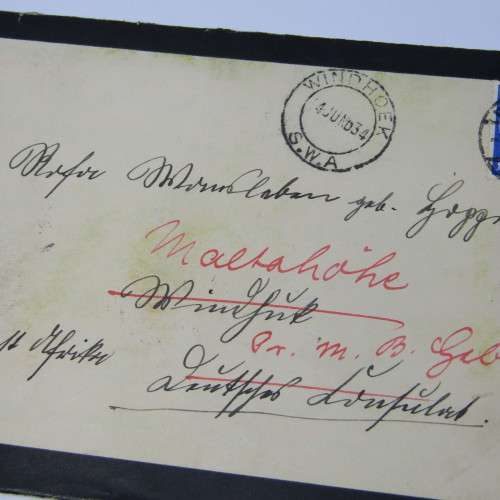 WINDHOEK
14 JUN 34
S.W.A.
Rosa Wansleben geb. Hoppe
Maltahöhe
Windhuk
Pr. M. B. Geb
st Afrika
Deutsches Konsulat.